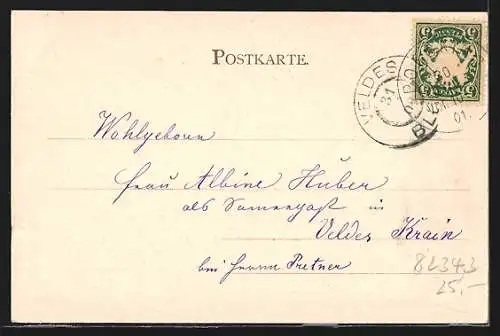 POSTKARTE.
VELDES
31
30
01.
5 5
Wohlgeborn
Frau Albine Huber
als Sommergast in
Veldes Krain
bei Herrn Pretner
8L343
25,-